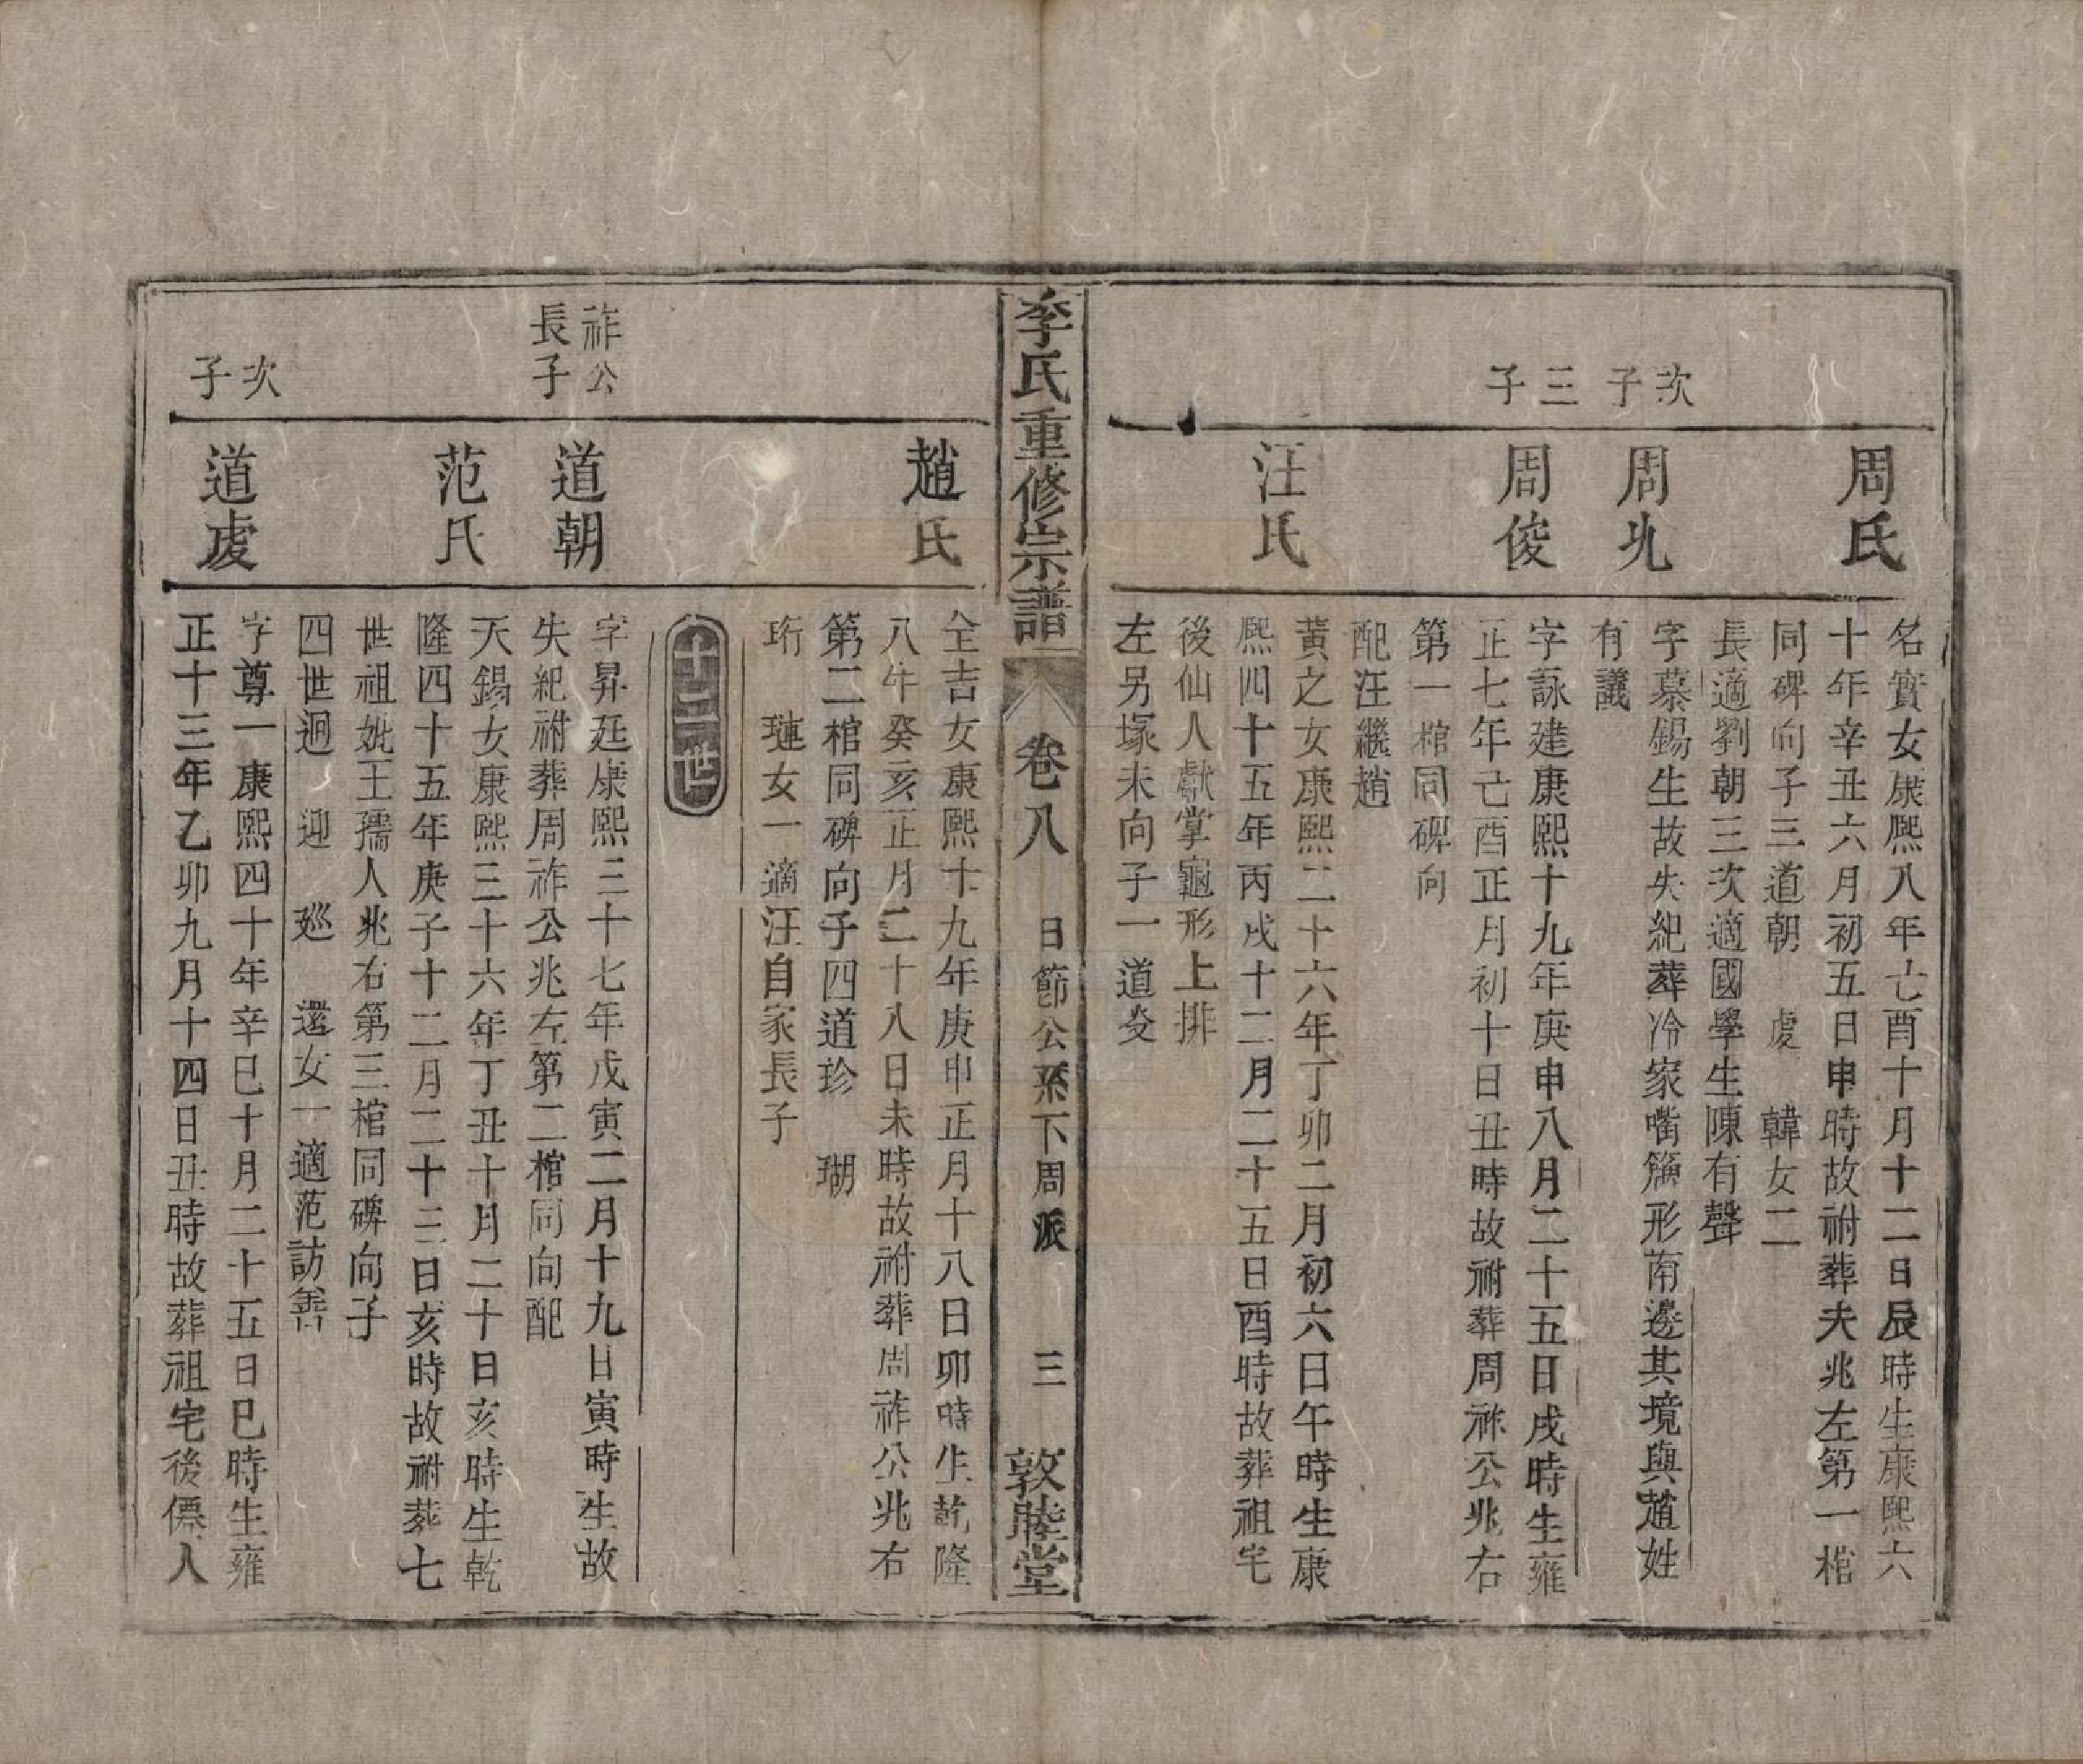 周氏
名實女康熙八年乚酉十月十二日辰時生康熙六
十年辛丑六月初五日申時故祔葬夫兆左第一棺
同碑向子三道朝 虔 韓女二
長適劉朝三次適國學生陳有聲
次子
周㐀
字慕錫生故失紀葬冷家嘴籲形南邊其境與趙姓
有議
三子
周俊
字詠建康熙十九年庚申八月二十五日戌時生雍
正七年己酉正月初十日丑時故祔葬周祚公兆右
第一棺同碑向
配汪繼趙
汪氏
黃之女康熙二十六年丁卯二月初六日午時生康
熙四十五年丙戌十二月二十五日酉時故葬祖宅
後仙人獻掌龜形上排
左另塚未向子一道炎
李氏重修宗譜 卷八 日節公系下周派 三 敦睦堂
趙氏
全吉女康熙十九年庚申正月十八日卯時生乾隆
八年癸亥正月二十八日未時故祔葬周祚公兆右
第二棺同碑向子四道珍 瑚
珩 璉女一適汪自家長子
十二世
祚公長子
道朝
字昇廷康熙三十七年戊寅二月十九日寅時生故
失紀祔葬周祚公兆左第二棺同向配
范氏
天錫女康熙三十六年丁丑十月二十日亥時生乾
隆四十五年庚子十二月二十三日亥時故祔葬七
世祖妣王孺人兆右第三棺同碑向子
四世迴 迎 廵 還女一適范訪
次子
道虔
字尊一康熙四十年辛巳十月二十五日巳時生雍
正十三年乙卯九月十四日丑時故葬祖宅後僊人